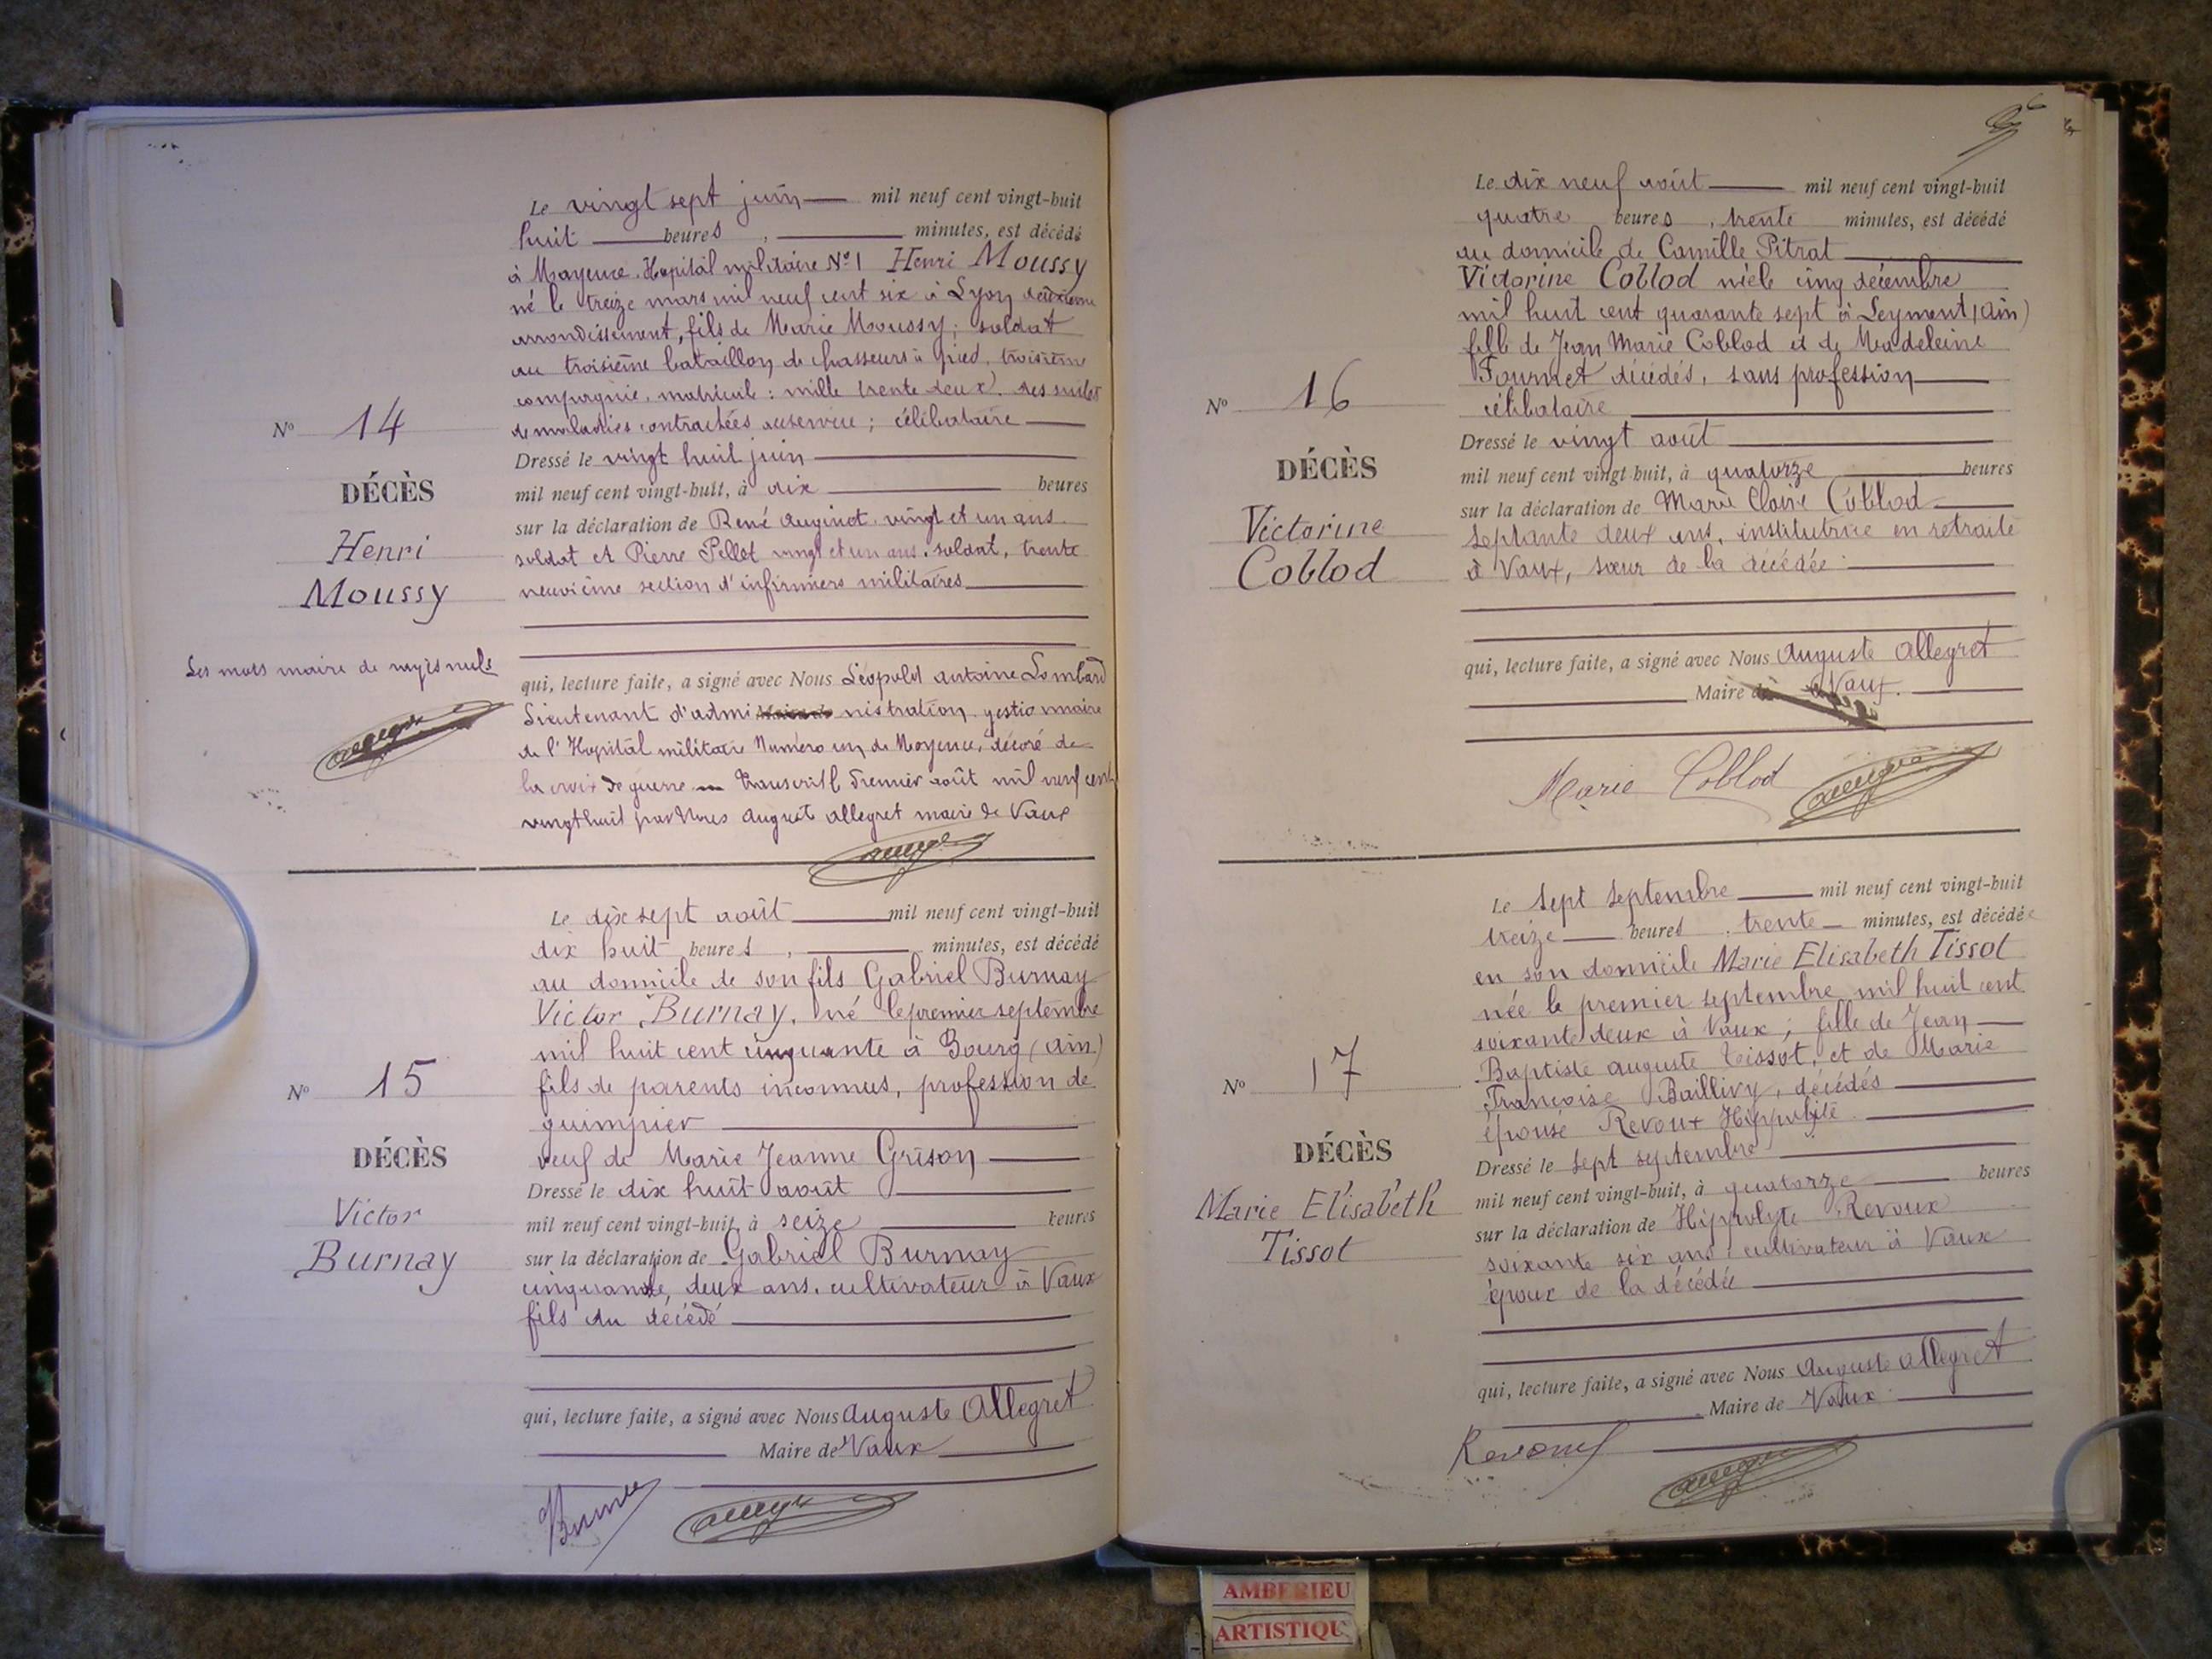 Le vingt sept juin mil neuf cent vingt-huit
huit heures , minutes, est décédé
à Mayence. Hopital militaire No 1 Henri Moussy
né le treize mars mil neuf cent six à Lyon deuxième
arrondissement, fils de Marie Moussy; soldat
au troisième bataillon de chasseurs à pied, troisième
compagnie, matricule : mille trente deux). des suites
de maladies contractées au service ; célibataire
No 14
Dressé le vingt huit juin
DÉCÈS
mil neuf cent vingt-huit, à dix heures
sur la déclaration de René Auginot. vingt et un ans
Henri
soldat et Pierre Pellot vingt et un ans. soldat, trente
Moussy
neuvième section d'infirmiers militaires
Les mots maire de rayés nuls
qui, lecture faite, a signé avec Nous Léopold Antoine Lombard
Lieutenant d'admi Maire de nistration gestionnaire
de l'Hopital militaire Numéro un de Mayence, décoré de
la croix de guerre Transcrit le Premier août mil neuf cent
vingt huit par Nous Auguste Allegret maire de Vaux
Le dix sept août mil neuf cent vingt-huit
dix huit heures , minutes, est décédé
au domicile de son fils Gabriel Burnay
Victor Burnay, né le premier septembre
mil huit cent cinquante à Bourg (Ain)
No 15
fils de parents inconnus, profession de
guimpier
DÉCÈS
veuf de Marie Jeanne Grison
Dressé le dix huit août
Victor
mil neuf cent vingt-huit, à seize heures
Burnay
sur la déclaration de Gabriel Burnay
cinquante, deux ans. cultivateur à Vaux
fils du décédé
qui, lecture faite, a signé avec Nous Auguste Allegret
Maire de Vaux
Le dix neuf août mil neuf cent vingt-huit
quatre heures , trente minutes, est décédé
au domicile de Camille Pitrat
Victorine Coblod née le cinq décembre
mil huit cent quarante sept à Leyment (Ain)
fille de Jean Marie Coblod et de Madeleine
Fournet décédés, sans profession
No 16
célibataire
Dressé le vingt août
DÉCÈS
mil neuf cent vingt-huit, à quatorze heures
sur la déclaration de Marie Claire Coblod
Victorine
septante deux ans, institutrice en retraite
Coblod
à Vaux, sœur de la décédée
qui, lecture faite, a signé avec Nous Auguste Allegret
Maire de Vaux.
Marie Coblod
Le sept septembre mil neuf cent vingt-huit
treize heures , trente minutes, est décédée
en son domicile Marie Elisabeth Tissot
née le premier septembre mil huit cent
soixante deux à Vaux ; fille de Jean
Baptiste Auguste Tissot, et de Marie
No 17
Françoise Baillivy, décédés
épouse Revoux Hippolyte
DÉCÈS
Dressé le sept septembre
mil neuf cent vingt-huit, à quatorze heures
Marie Elisabeth
sur la déclaration de Hippolyte Revoux
Tissot
soixante six ans, cultivateur à Vaux
époux de la décédée
qui, lecture faite, a signé avec Nous Auguste Allegret
Maire de Vaux
Revoux
AMBERIEU
ARTISTIQU